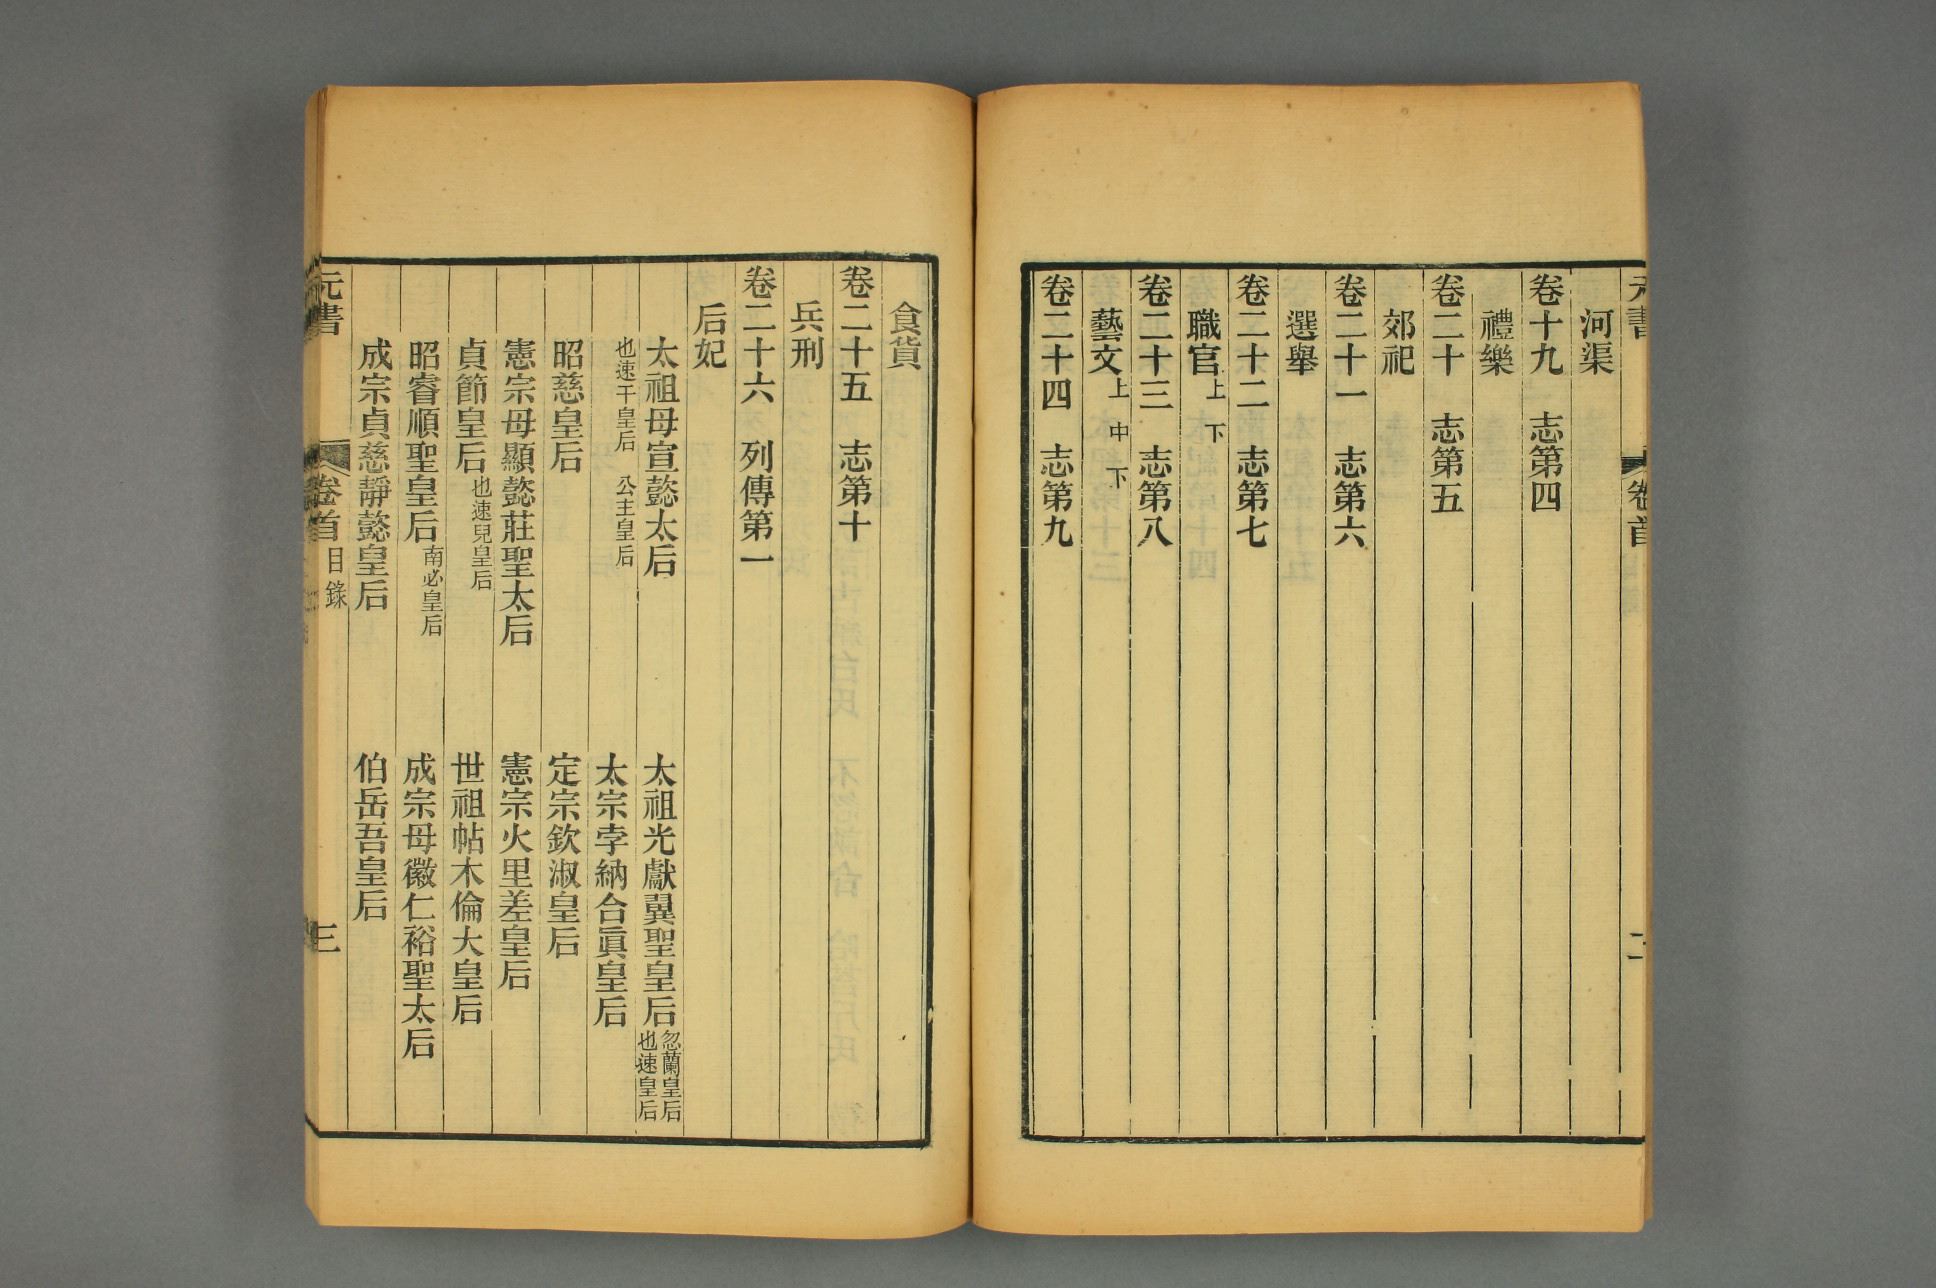 元書 卷首 二
河渠
卷十九 志第四
禮樂
卷二十 志第五
郊祀
卷二十一 志第六
選舉
卷二十二 志第七
職官上 下
卷二十三 志第八
藝文上 中 下
卷二十四 志第九
食貨
卷二十五 志第十
兵刑
卷二十六 列傳第一
后妃
太祖母宣懿太后 太祖光獻翼聖皇后忽蘭皇后 也速皇后
也速干皇后 公主皇后 太宗孛納合眞皇后
昭慈皇后 定宗欽淑皇后
憲宗母顯懿莊聖太后 憲宗火里差皇后
貞節皇后也速兒皇后 世祖帖木倫大皇后
昭睿順聖皇后南必皇后 成宗母徽仁裕聖太后
成宗貞慈靜懿皇后 伯岳吾皇后
元書 卷首目錄 三